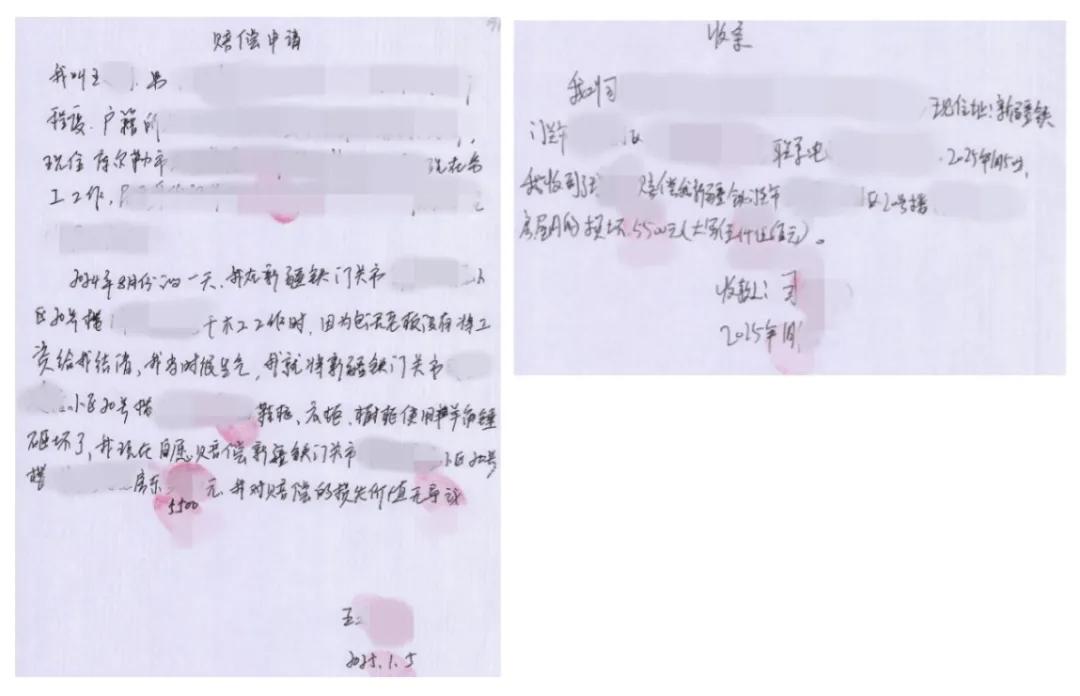 赔偿申请
我叫王 男
程度.户籍所
现住库尔勒市 现在务
工工作,
2024年8月份的一天,我在新疆铁门关市 小
区20号楼 干木工工作时,因为包工老板没有将工
资给我结清,我当时很生气,我就将新疆铁门关市
小区20号楼 鞋柜、衣柜、橱柜使用羊角锤
砸坏了,我现在自愿赔偿新疆铁门关市 小区20号
楼 房东 5500 元.我对赔偿的损失价值无争议
王
2025.1.5
收条
我叫司 现住址:新疆铁
门关市 区 联系电 .2025年1月5日,
我收到了王 赔偿我新疆铁门关市 区20号楼
房屋内的损坏5500元(大写伍仟伍佰元)。
收款人:司
2025年1月